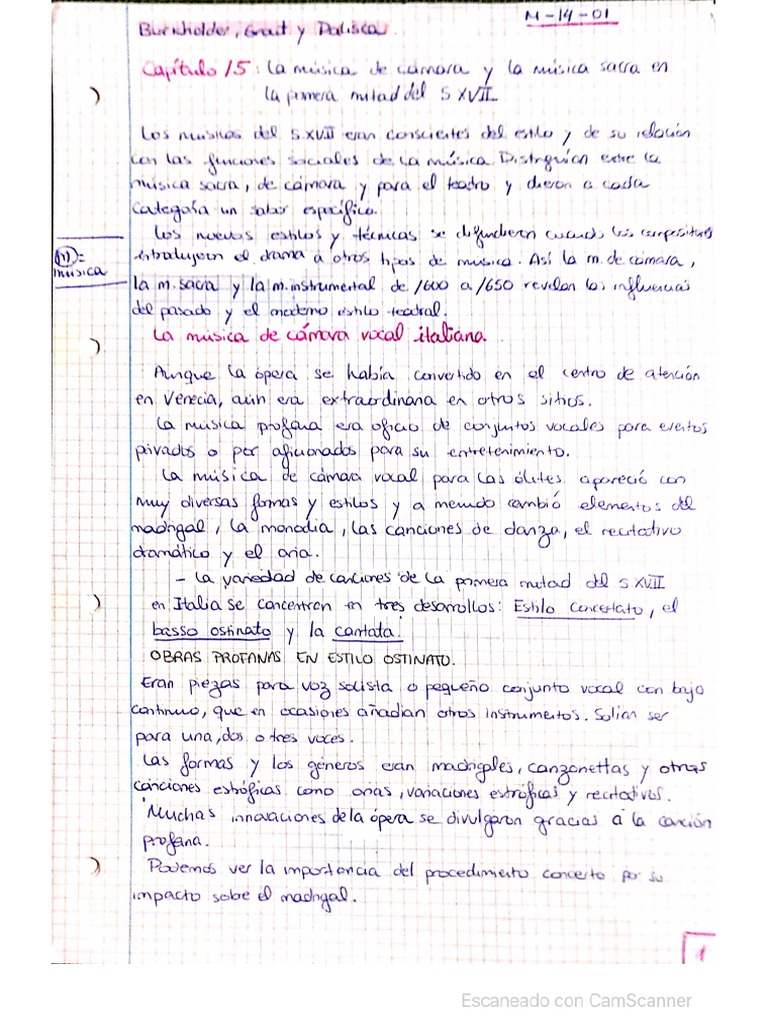 M-14-01
Burkholder, Grout y Palisca.
Capítulo 15: La música de cámara y la música sacra en
la primera mitad del S XVII.
Los músicos del S.XVII eran conscientes del estilo y de su relación
con las funciones sociales de la música. Distinguían entre la
música sacra, de cámara y para el teatro y dieron a cada
categoría un sabor específico.
Los nuevos estilos y técnicas se difundieron cuando los compositores
introdujeron el drama a otros tipos de música. Así la m. de cámara,
(m)=
música
la m. sacra y la m. instrumental de 1600 a 1650 revelan las influencias
del pasado y el moderno estilo teatral.
La música de cámara vocal italiana.
Aunque la ópera se había convertido en el centro de atención
en Venecia, aún era extraordinaria en otros sitios.
La música profana era oficio de conjuntos vocales para eventos
privados o por aficionados para su entretenimiento.
La música de cámara vocal para las élites apareció con
muy diversas formas y estilos y a menudo cambió elementos del
madrigal, la monodia, las canciones de danza, el recitativo
dramático y el aria.
- La variedad de canciones de la primera mitad del S XVII
en Italia se concentran en tres desarrollos: Estilo concertato, el
basso ostinato y la cantata.
OBRAS PROFANAS EN ESTILO OSTINATO.
Eran piezas para voz solista o pequeño conjunto vocal con bajo
continuo, que en ocasiones añadían otros instrumentos. Solían ser
para una, dos o tres voces.
Las formas y los géneros eran madrigales, canzonettas y otras
canciones estróficas como arias, variaciones estróficas y recitativos.
Muchas innovaciones de la ópera se divulgaron gracias a la canción
profana.
Podemos ver la importancia del procedimiento concerto por su
impacto sobre el madrigal.
1
Escaneado con CamScanner